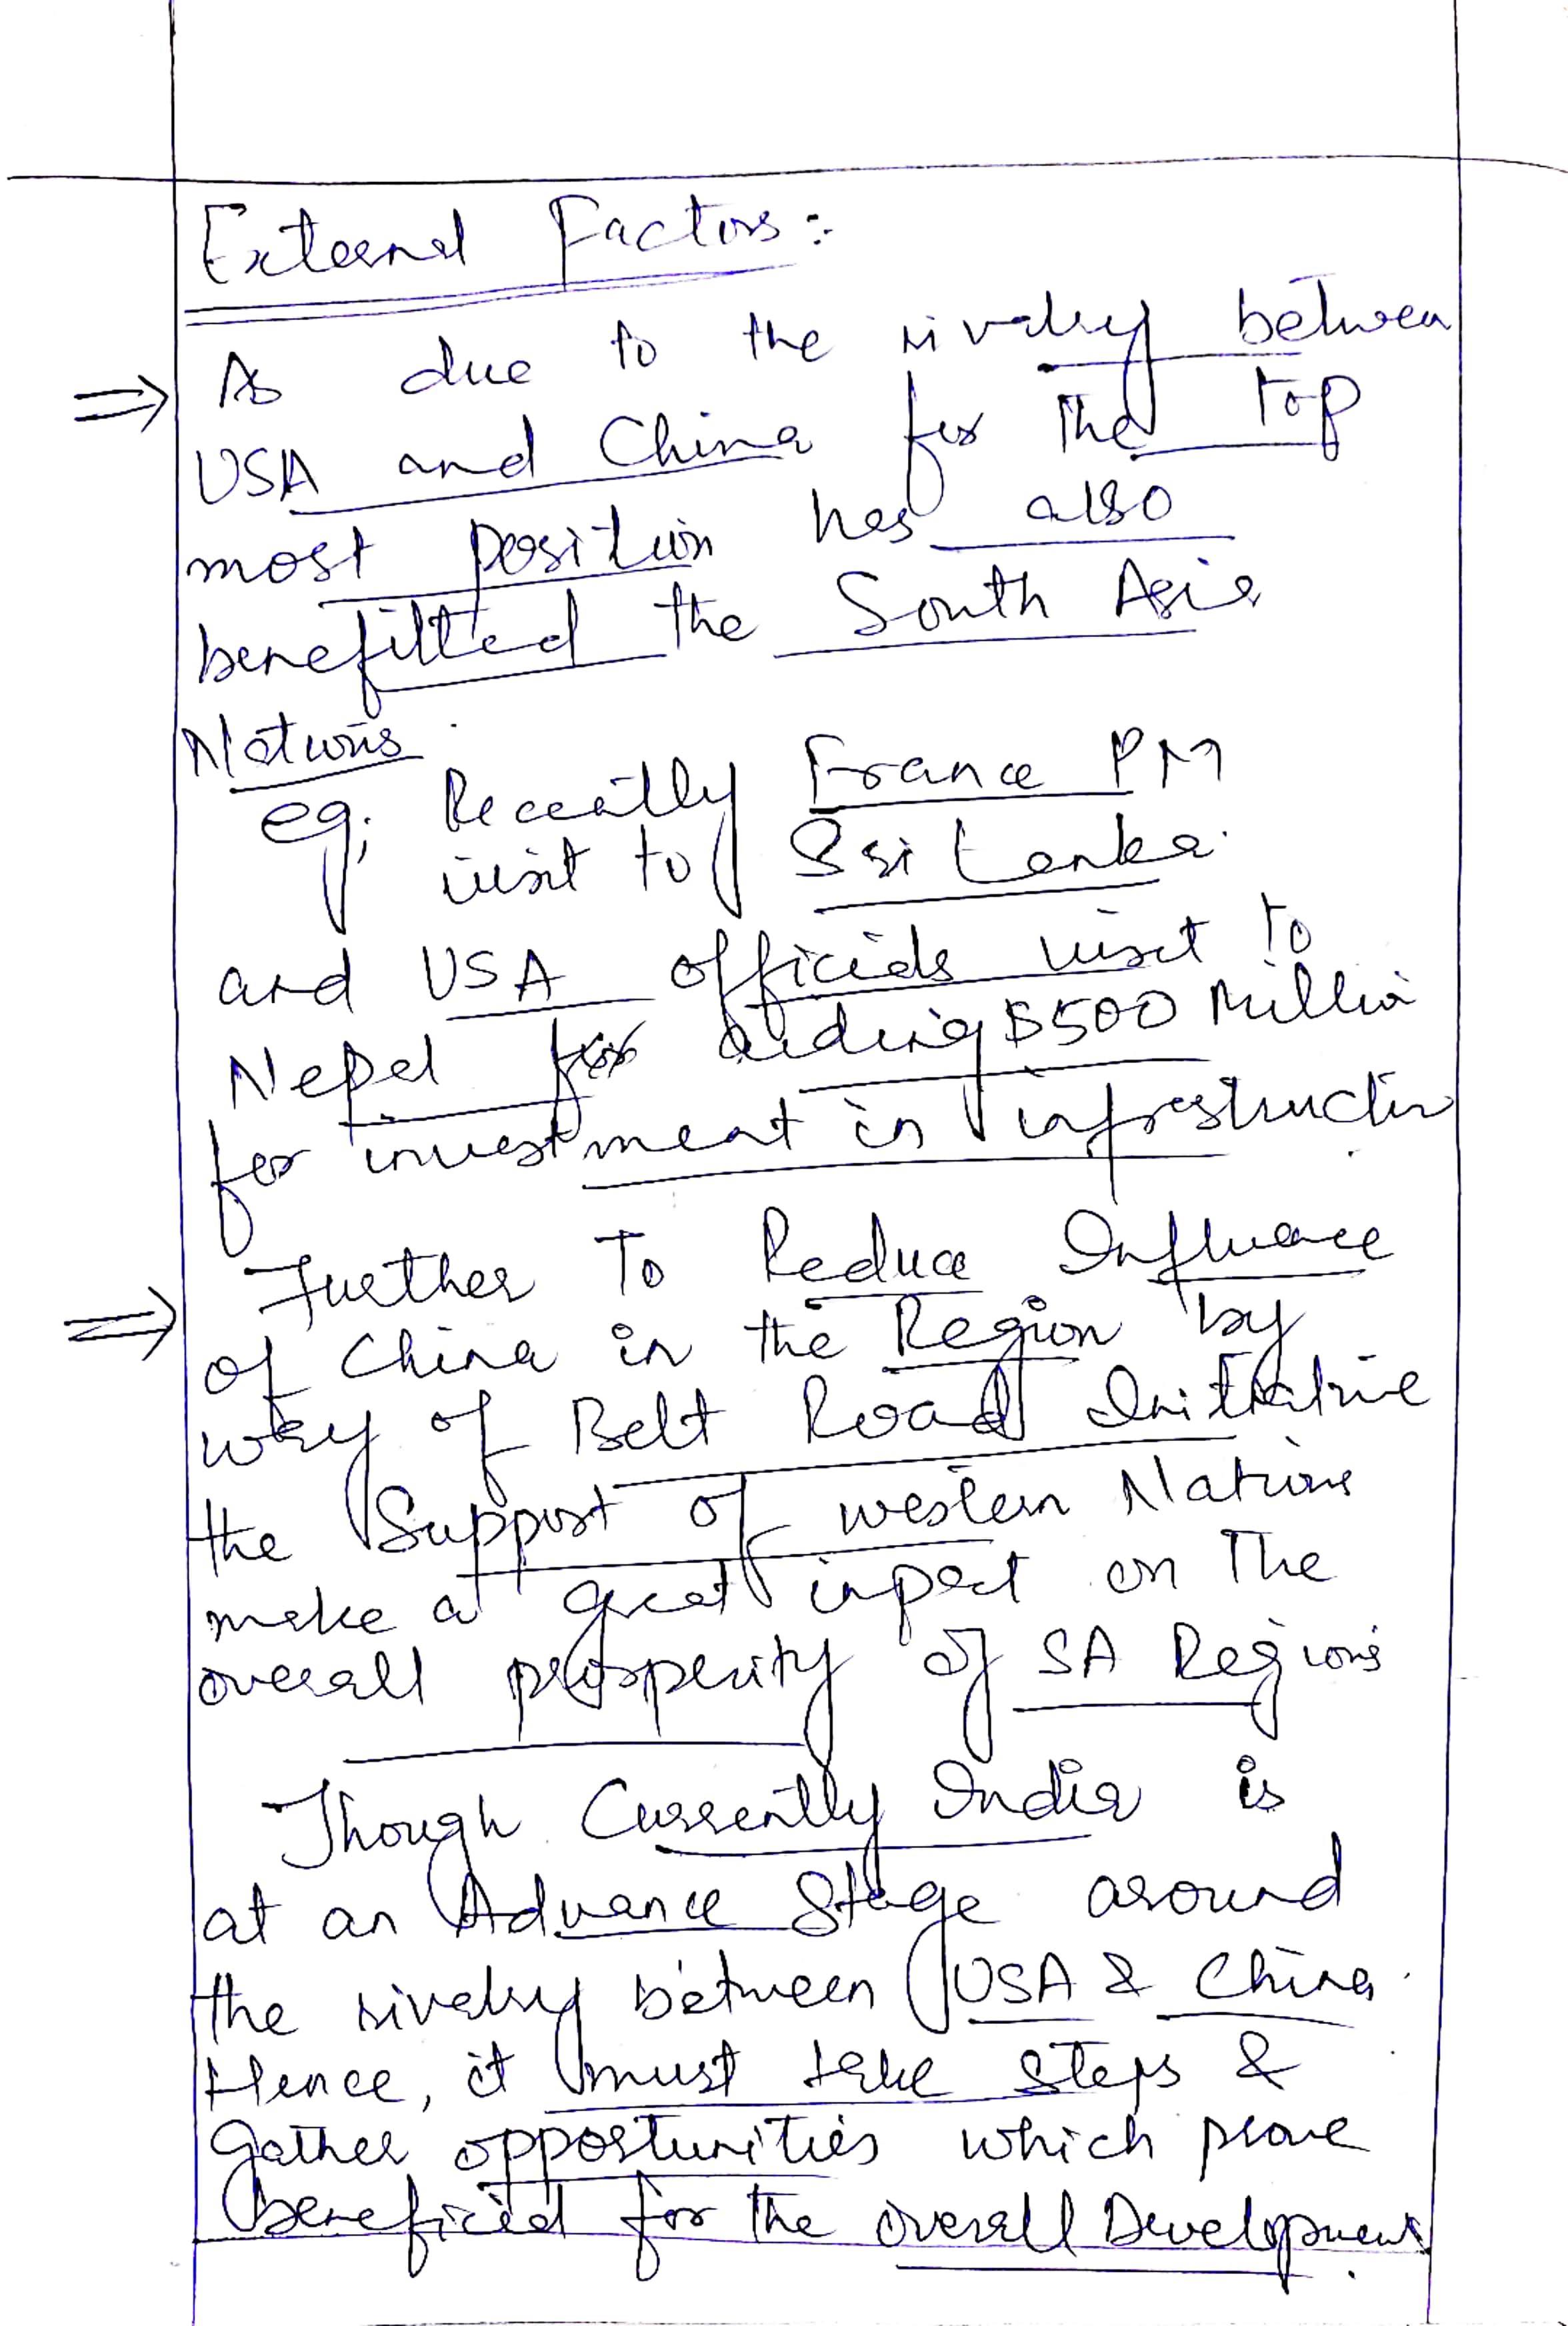 External Factors:
⇒ As due to the rivalry between
USA and China for the top
most position has also
benefitted the South Asia
Nations.
eg; Recently France PM
visit to Sri Lanka.
and USA officials visit to
Nepal for aiding $500 Million
for investment in infrastructure
⇒ Further To Reduce Influence
of China in the Region by
way of Belt Road Initiative
the Support of western Nations
make a great impact on The
overall prosperity of SA Regions
Though Currently India is
at an Advance Stage around
the rivalry between USA & China.
Hence, it must take steps &
Gather opportunities which prove
beneficial for the overall Development.